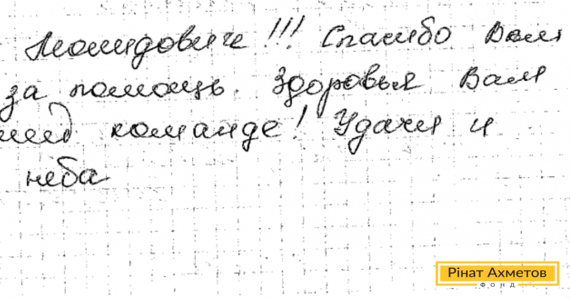 !!! Спасибо Вам
за помощь. Здоровья Вам
команде! Удачи и
неба
Рінат Ахметов
ФОНД